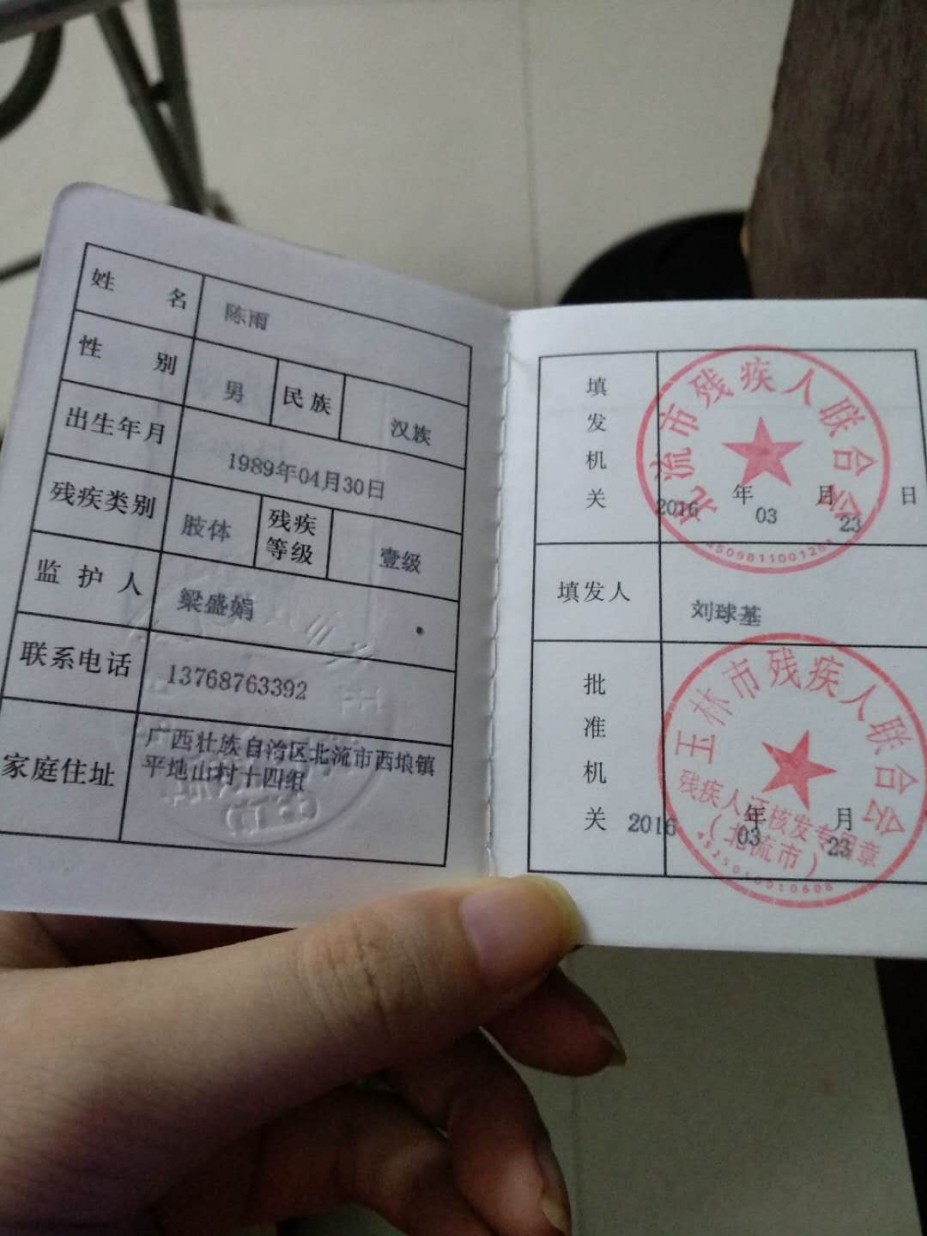 姓名 陈雨
性别 男 民族 汉族
出生年月 1989年04月30日
残疾类别 肢体 残疾等级 壹级
监护人 梁盛娟
联系电话 13768763392
家庭住址 广西壮族自治区北流市西埌镇
平地山村十四组
填发机关 2016年03月23日
北流市残疾人联合会
填发人 刘球基
批准机关 2016年03月23
玉林市残疾人联合会
残疾人证核发专用章
（北流市）